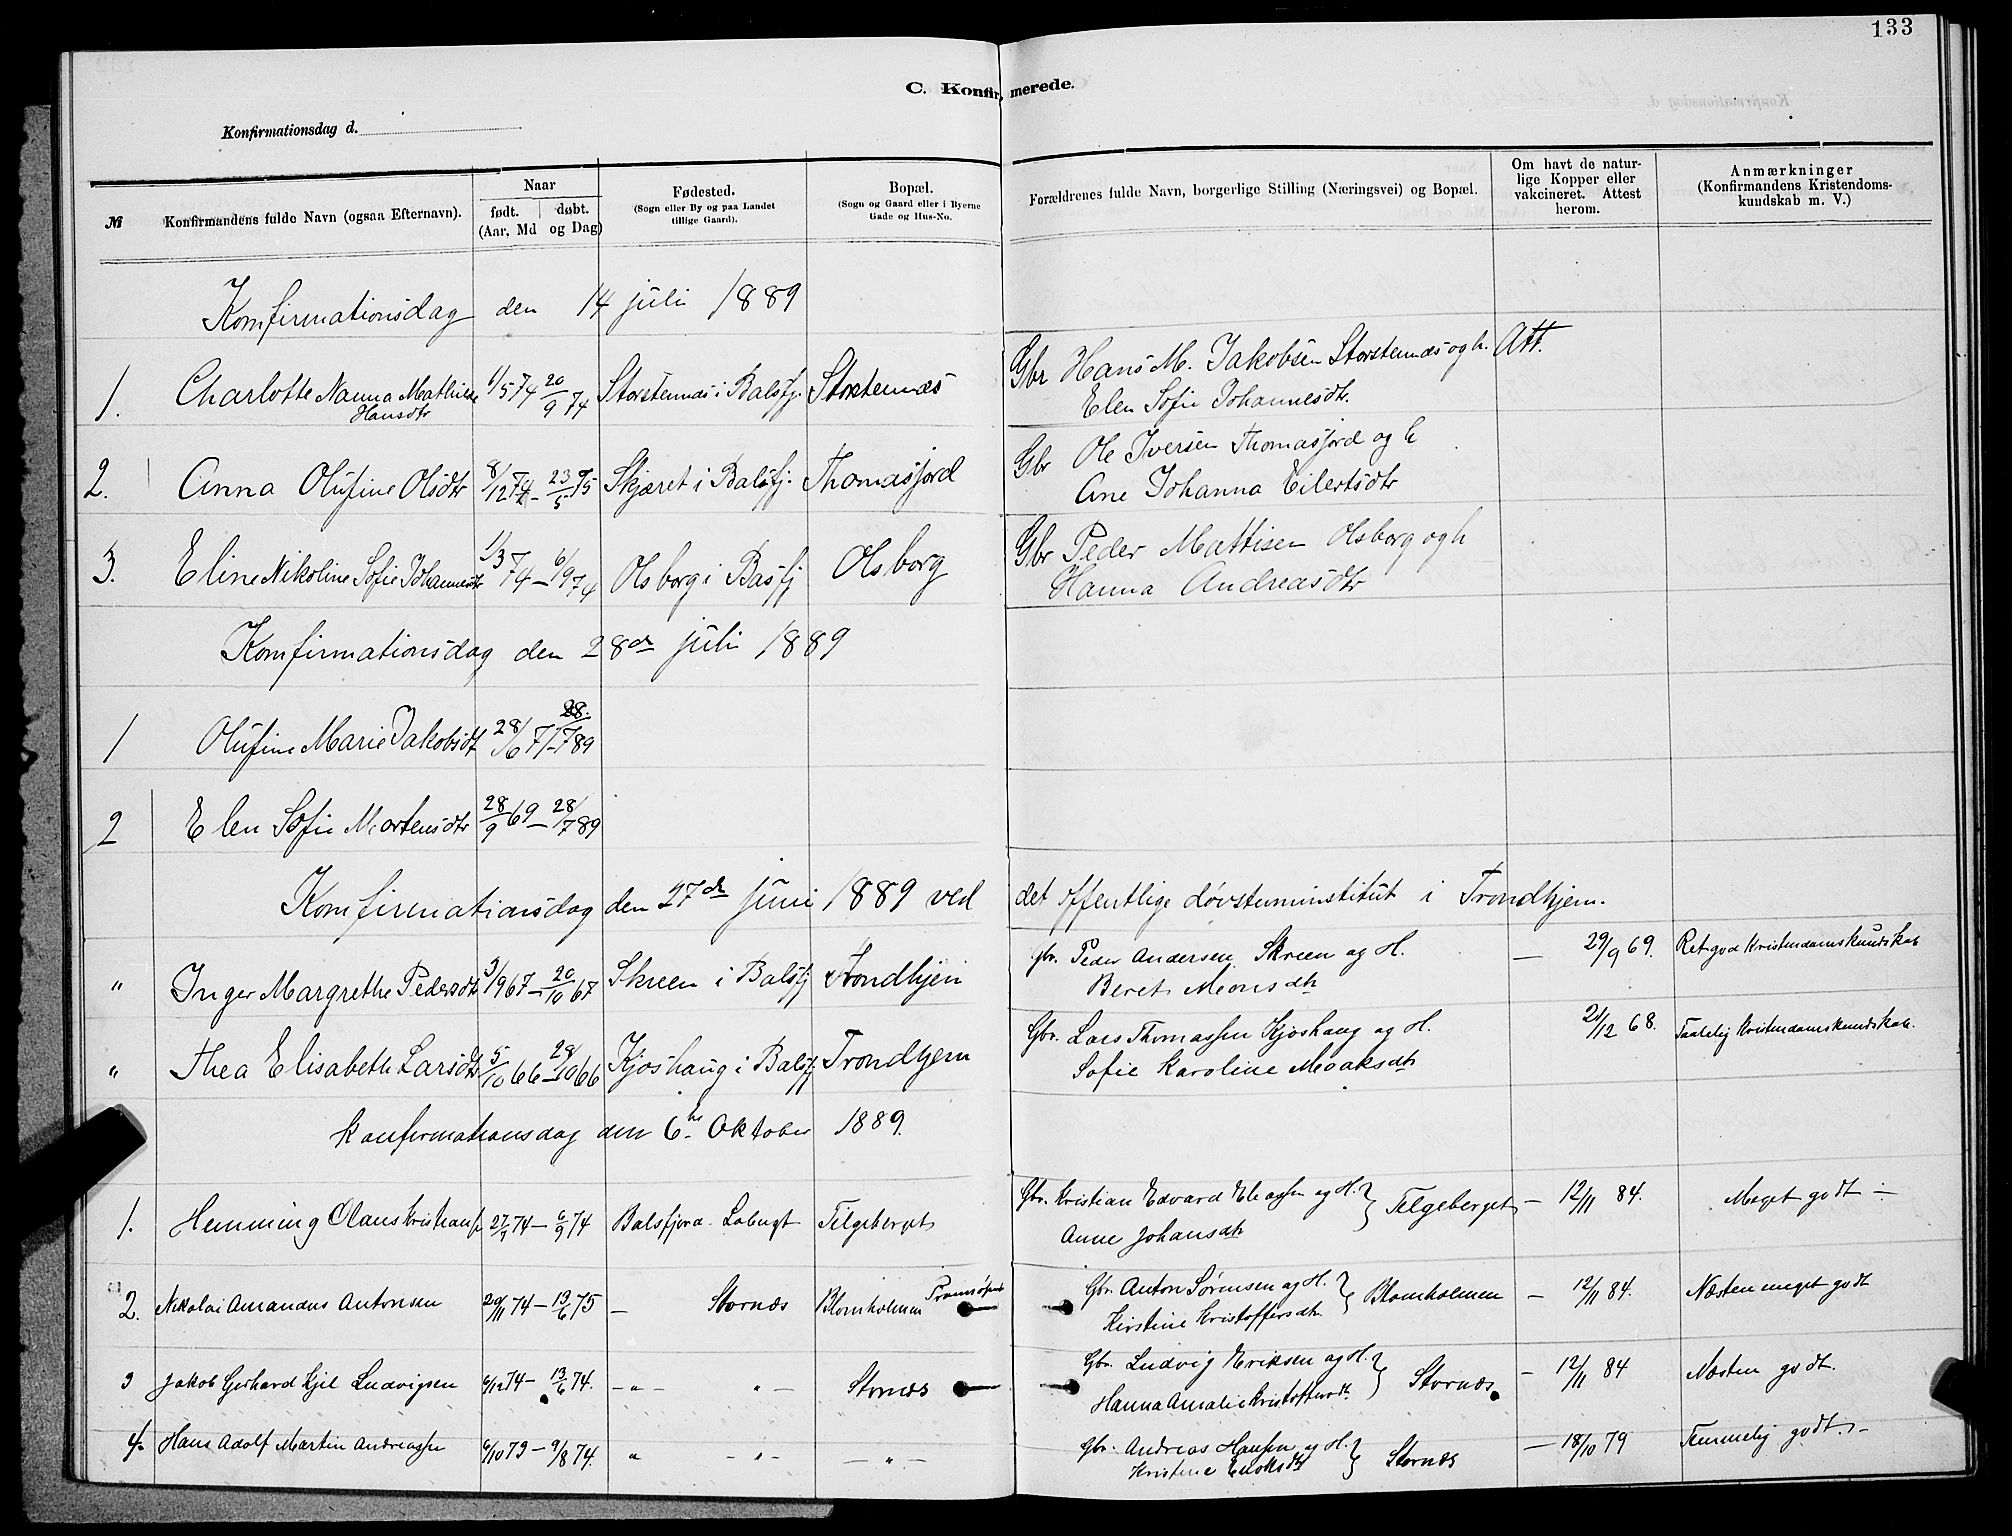 133
C. Konfirmerede.
Konfirmationsdag d.
№ Konfirmandens fulde Navn (ogsaa Efternavn). Naar født. døbt. (Aar, Md og Dag) Fødested. (Sogn eller By og paa Landet tillige Gaard). Bopæl. (Sogn og Gaard eller i Byerne Gade og Hus-No. Forældrenes fulde Navn, borgerlige Stilling (Næringsvei) og Bopæl. Om havt de naturlige Kopper eller vakcineret. Attest herom. Anmærkninger (Konfirmandens Kristendomskundskab m. V.)
Komfirmationsdag den 14 juli 1889
1. Charlotte Nanna Mathilde Hansdtr 1/5 74 20/9 74 Storstennæs i Balsfj. Storstennæs Gbr Hans M. Jakobsen Storstennæs og h. Att.
Elen Sofie Johannesdtr.
2. Anna Olufine Olsdtr 8/12 74 - 23/5 75 Skjæret i Balsfj. Thomasjord Gbr Ole Iversen Thomasjord og h
Ane Johanna Eilertsdtr
3. Eline Nikoline Sofie Johannesdtr 1/3 74 - 6/9 74 Olsborg i Basfj Olsborg Gbr Peder Mattisen Olsborg og h
Hanna Andreasdtr
Komfirmationsdag den 28de juli 1889
1 Olufine Marie Jakobsdt 28/6 71 - 28/7 89
2 Elen Sofie Mortensdtr 28/9 69 - 28/7 89
Komfirmationsdag den 27de juni 1889 ved det offentlige døvstuminstitut i Trondhjem.
" Inger Margrethe Pedersdtr 3/9 67 - 20/10 67 Skreen i Balsfj Trondhjem gbr. Peder Andersen Skreen og H. — 29/9 69. Ret god Kristendomskundskab
Beret Monsdtr
" Thea Elisabeth Larsdtr 5/10 66 - 29/10 66 Kjoshaug i Balsfj Trondhjem Gbr. Lars Thomassen Kjoshaug og H. 21/12 68. Taalelig Kristendomskundskab.
Sofie Karoline Moaksdtr
Konfirmationsdag den 6te Oktober 1889.
1. Hemming Olaus Kristiansen 27/7 74 - 6/9 74 Balsfjord - Lobugt Telgeberget Gbr. Kristian Edvard Eliassen og H. } Telgeberget — 12/11 84. Meget godt
Anne Johansdtr
2. Nikolai Amandus Antonsen 20/11 74 - 13/6 75 — Stornæs Blomholmen Tromsø Gbr. Anton Sørensen og H. } Blomholmen — 12/11 84. Næsten meget godt
Kirstine Kristoffersdtr.
3 Jakob Gerhard Kjil Ludvigsen 6/12 74 - 13/6 74. - " - " - Stornæs Gbr. Ludvig Eriksen og H. } Stornæs — 12/11 84 Næsten godt.
Hanna Amalie Kristoffersdt.
4. Hans Adolf Martin Andreassen 6/10 73 - 9/8 74. " - " - - " - Gbr. Andreas Hansen og H. } Stornæs — 18/10 79 Temmelig godt. -
Kristine Enoksdtr